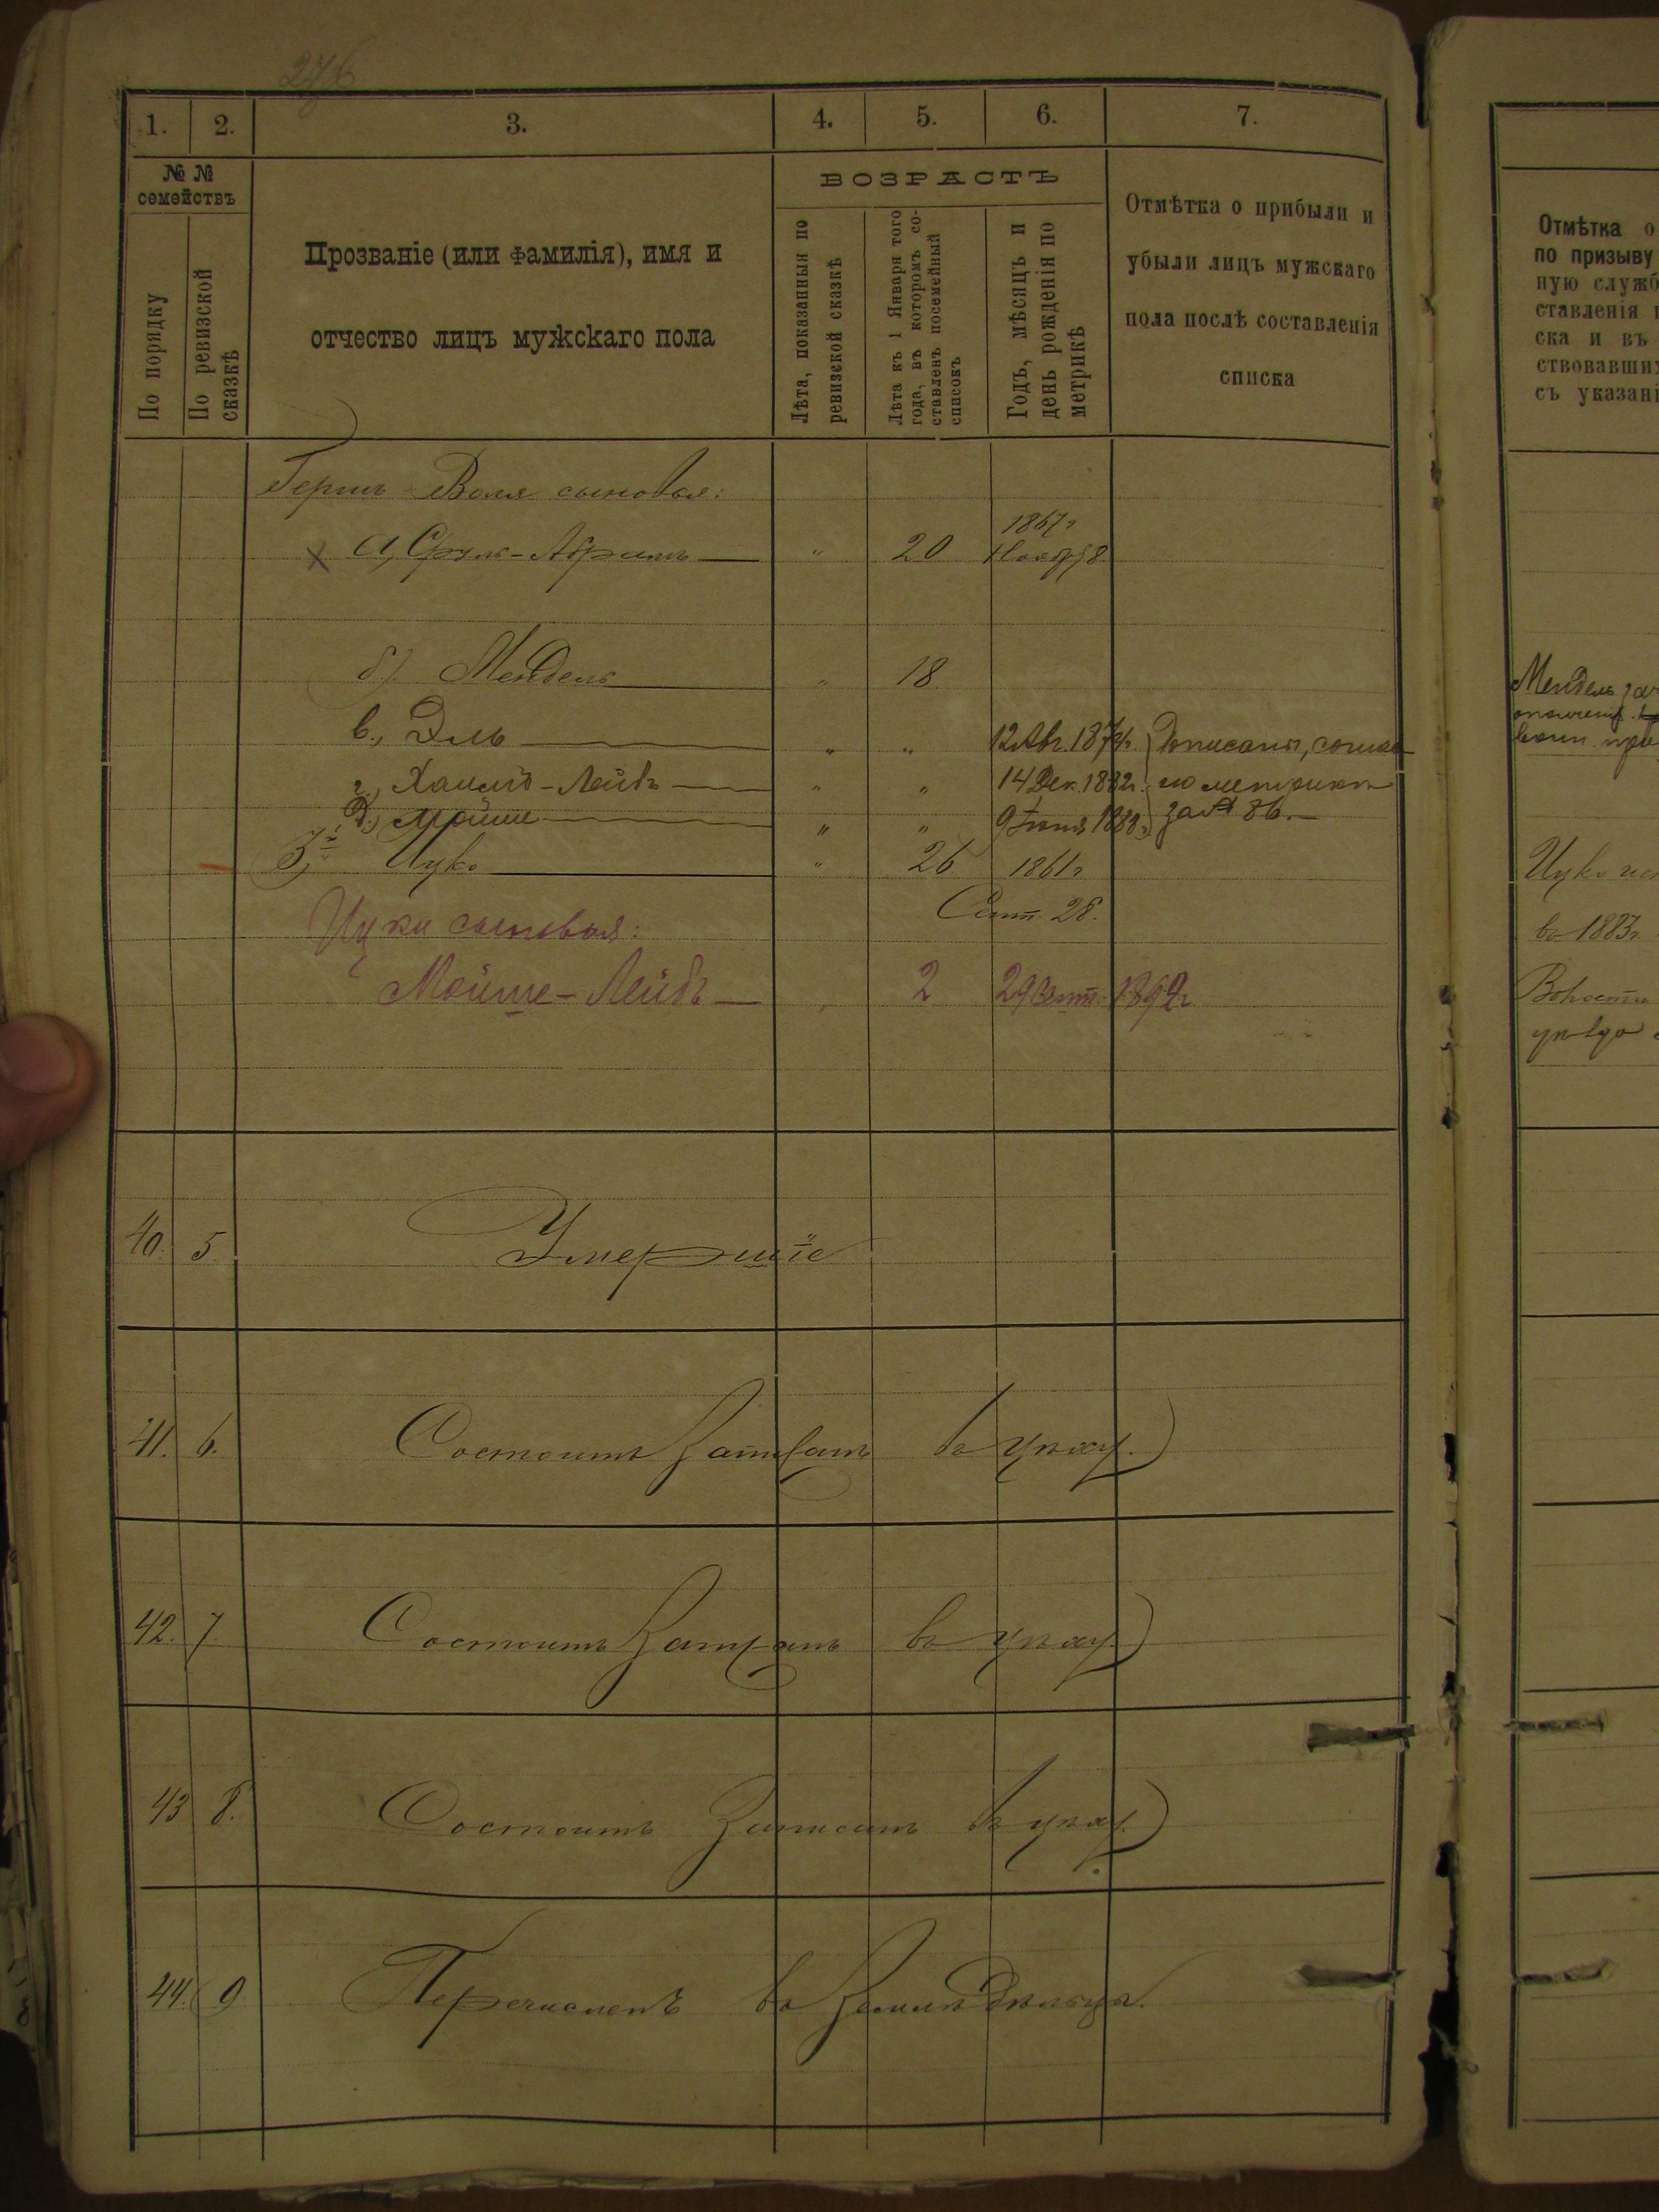 276
1. 2. 3. 4. 5. 6. 7.
№ №
семействъ
По порядку
По ревизской
сказкѣ
Прозваніе (или фамилія), имя и
отчество лицъ мужскаго пола
ВОЗРАСТЪ
Лѣта, показанныя по
ревизской сказкѣ
Лѣта къ 1 Января того
года, въ которомъ со-
ставленъ посемейный
списокъ
Годъ, мѣсяцъ и
день рожденія по
метрикѣ
Отмѣтка о прибыли и
убыли лицъ мужскаго
пола послѣ составленія
списка
Герша Воля сыновья:
1867 г
а, Сруль-Абрамъ " 20 Ноября 8
б) Мендель " 18
в., Эль " " 12 Авг. 187 г. Дописаны, соглас
г., Хаимъ-Лейбъ " " 14 Дек. 1882 г. но метрики
д.) Мойше " " 9 Іюня 1888 г. за № 86.
3, Ицко " 26 1861 г
Сент. 28.
Ицки сыновья:
Мойше-Лейбъ " 2 29 Сент. 1892 г.
40. 5. Умершіе
41. 6. Состоитъ Записанъ въ
42. 7. Состоитъ Записанъ въ
43 8. Состоитъ Записанъ въ
44. 9 Перечисленъ въ Земледѣльцы.
Отмѣтка о
по призыву
ную служб
ставленія
ска и въ
ствовавших
съ указані
Мендель
Ицко
въ 1883 г.
Волости
уѣзда